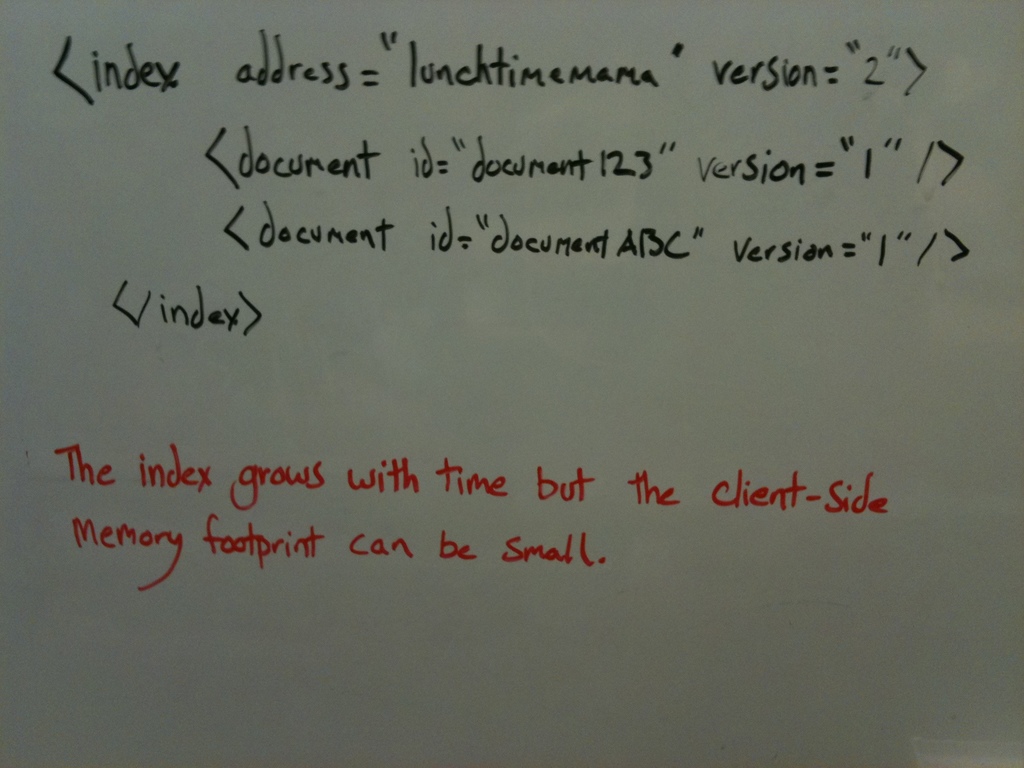 <index address="lunchtimemama" version="2">
<document id="document123" version="1" />
<document id="documentABC" version="1" />
</index>
The index grows with time but the client-side
memory footprint can be small.